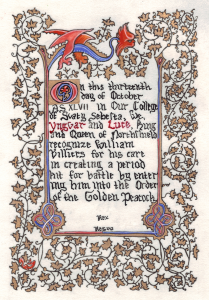 On this thirteenth
day of October
AS XLVII in Our College
of Svaty Sebesta, We,
Yngvar and Luce, King
and Queen of Northshield
recognize William
Villiers for his care
in creating a period
kit for battle by enter
ing him into the Order
of the Golden Peacock.
Rex
Regina